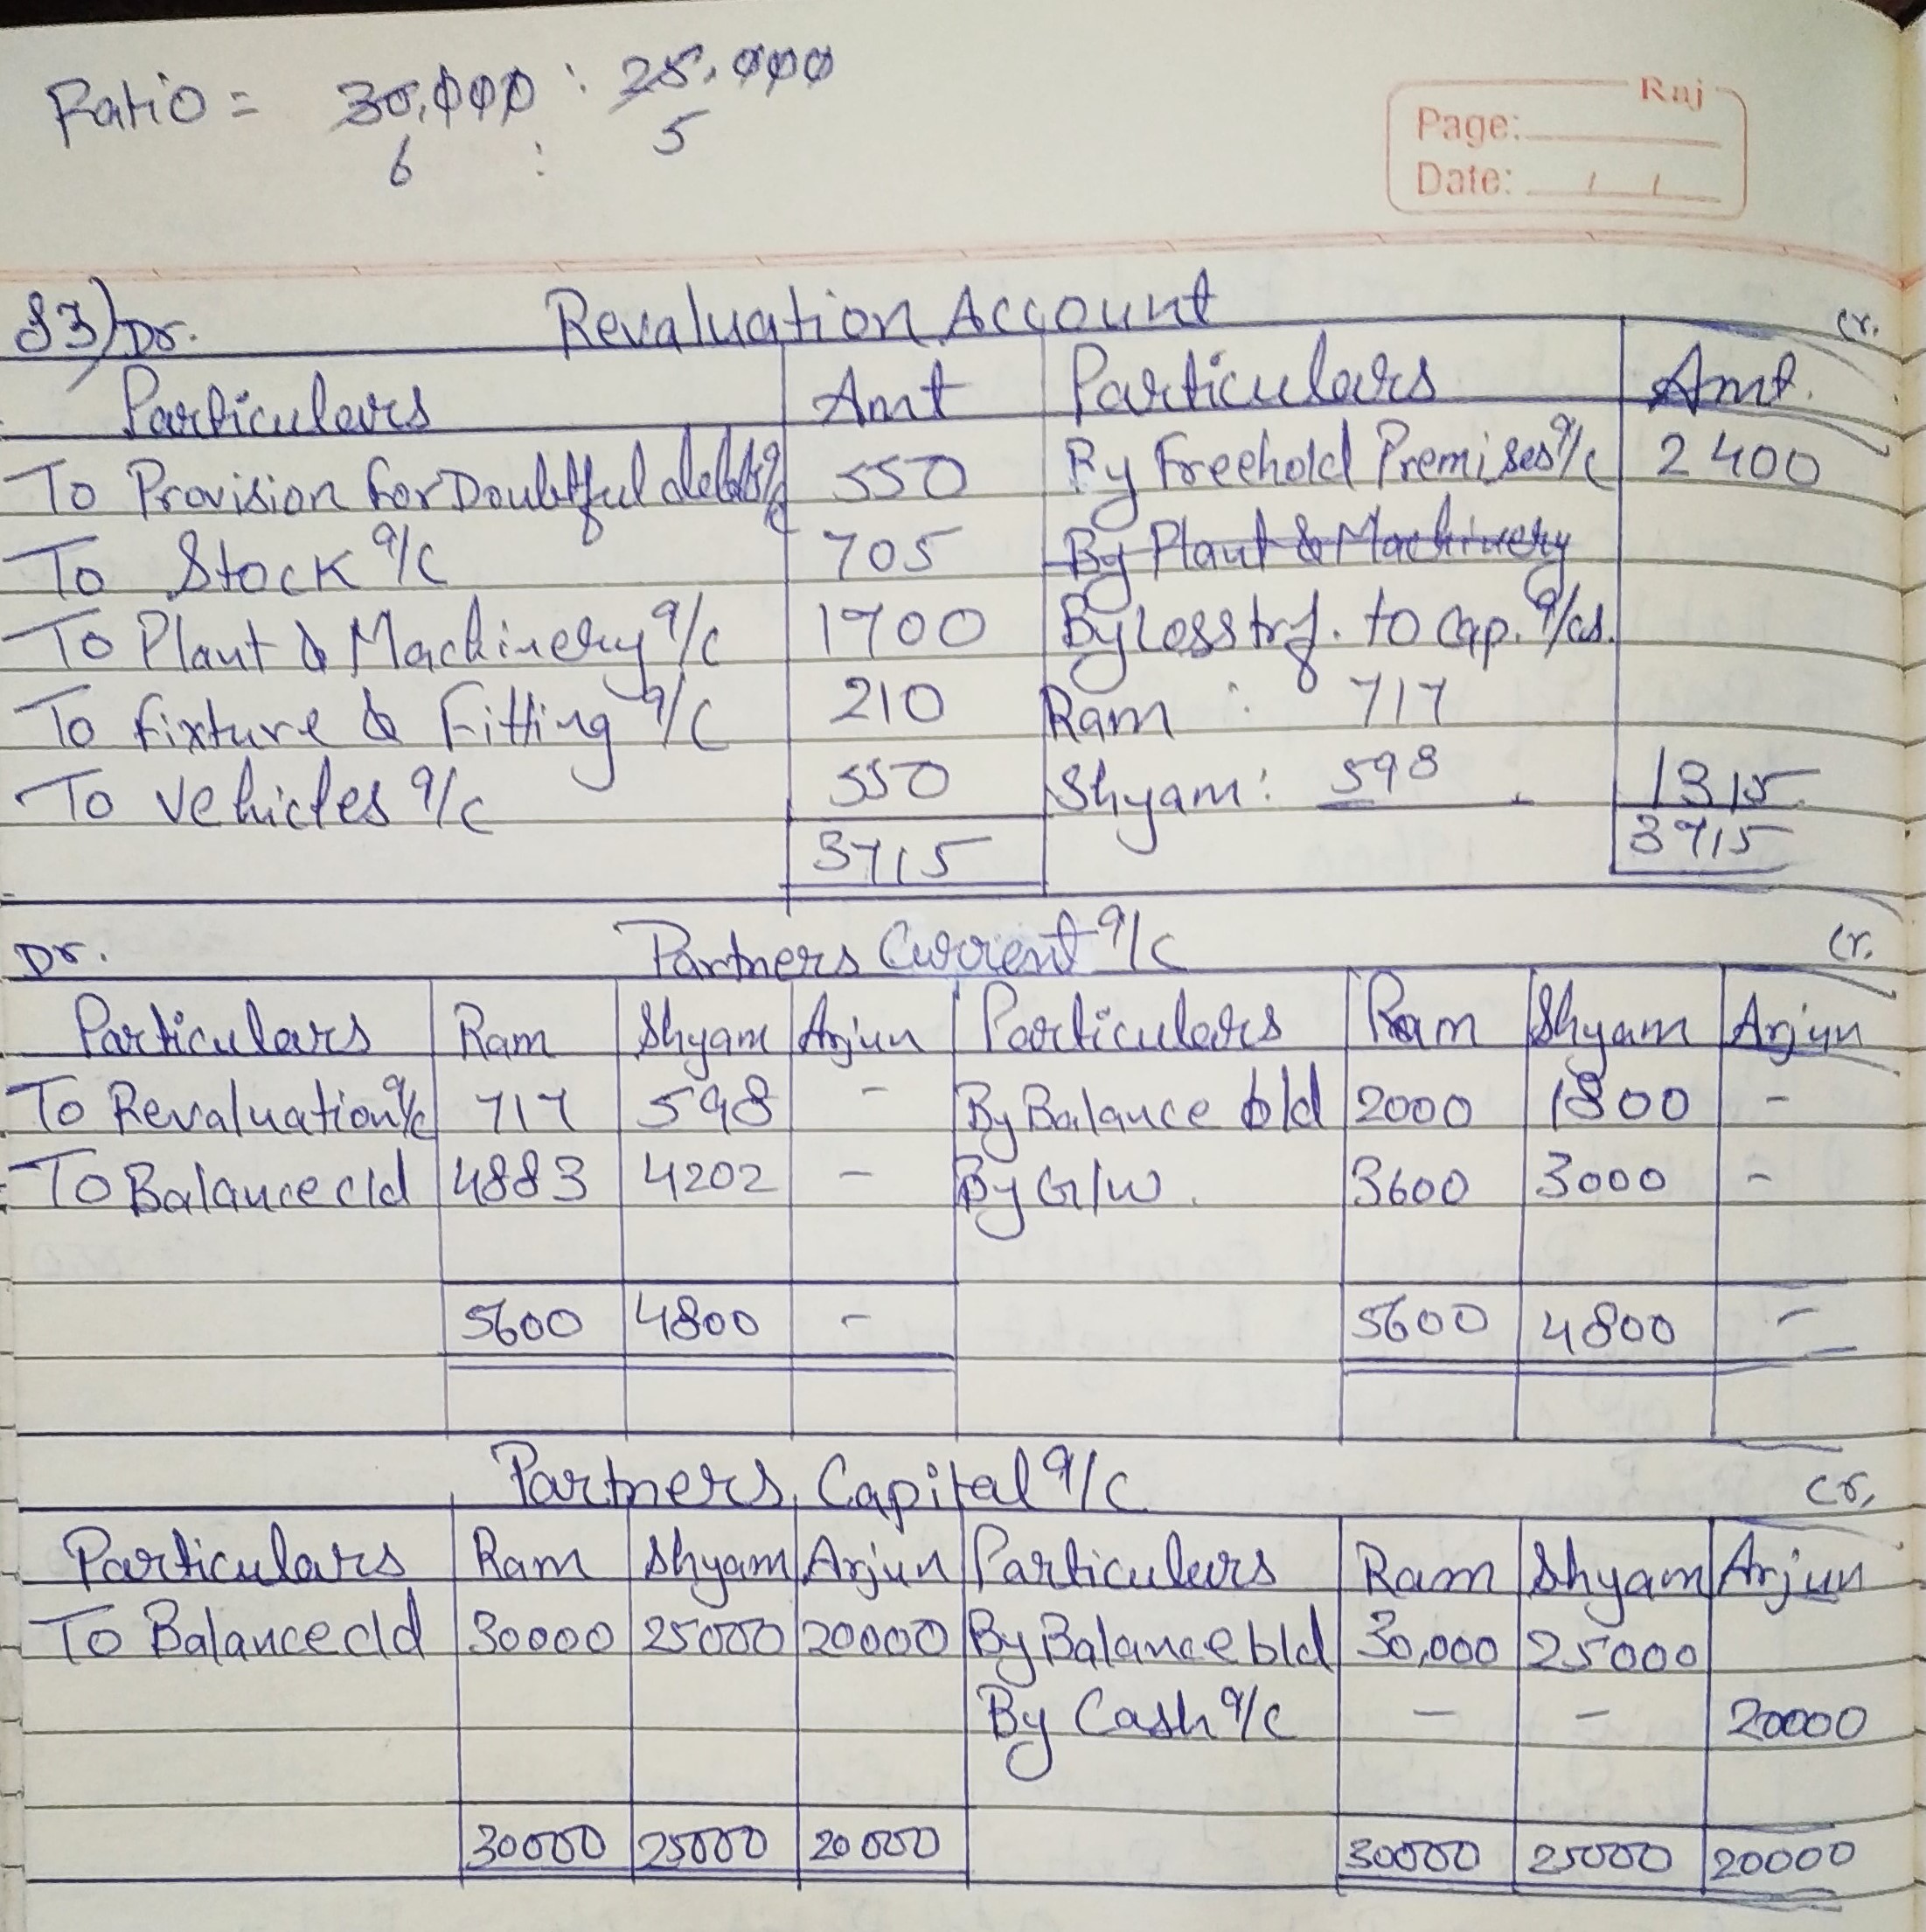 Ratio = 30,000 : 25,000
6 : 5
Raj
Page:
Date: / /
83) Dr. Revaluation Account Cr.
Particulars Amt Particulars Amt.
To Provision for Doubtful debts a/c 550 By Freehold Premises a/c 2400
To Stock a/c 705 By Plant & Machinery
To Plant & Machinery a/c 1700 By Loss trf. to Cap. a/cs.
To Fixture & Fitting a/c 210 Ram : 717
To Vehicles a/c 550 Shyam : 598 1315
3715 3715
Dr. Partners Current a/c Cr.
Particulars Ram Shyam Arjun Particulars Ram Shyam Arjun
To Revaluation a/c 717 598 - By Balance b/d 2000 1800 -
To Balance c/d 4883 4202 - By G/W. 3600 3000 -
5600 4800 - 5600 4800 -
Partners Capital a/c Cr.
Particulars Ram Shyam Arjun Particulars Ram Shyam Arjun
To Balance c/d 30000 25000 20000 By Balance b/d 30,000 25000
By Cash a/c - - 20000
30000 25000 20000 30000 25000 20000